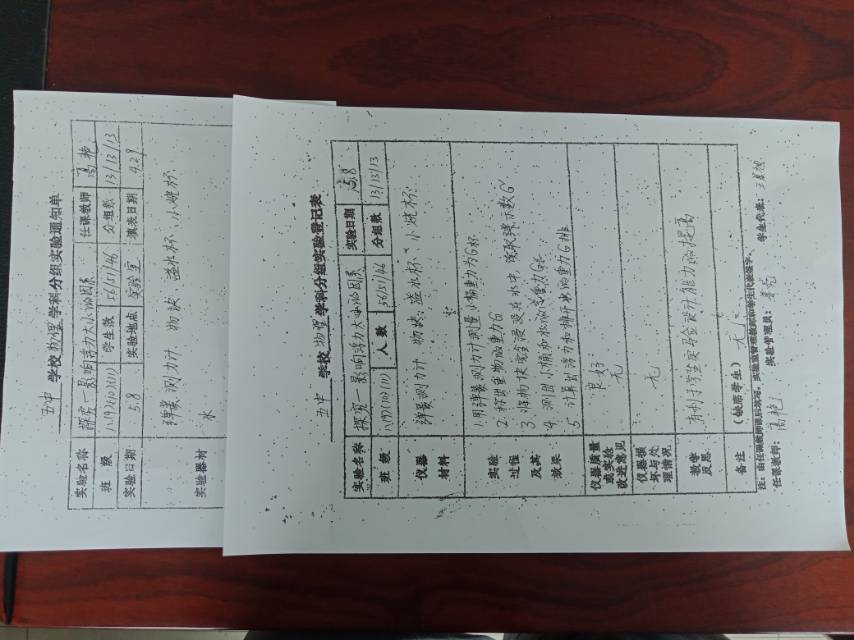 五中 学校 物理 学科分组实验通知单
实验名称 探究一影响浮力大小的因素 任课教师 高艳
班级 学生数 56/51/46 分组数 13/13/13
实验日期 5.8 实验地点 实验室 填表日期 4.29
实验器材 弹簧测力计、物块、溢水杯、小烧杯、
水
五中 学校 物理 学科分组实验登记表
实验名称 探究一影响浮力大小的因素 实验日期 5.8
班级 人数 56/51/46 分组数 13/13/13
仪器材料 弹簧测力计、物块、溢水杯、小烧杯、
实验过程及其效果
1. 用弹簧测力计测量小桶重力为G杯
2. 称出重物的重力G
3. 将物体完全浸没在水中,读取弹簧示数G'
4. 测出小桶和水的总重力G总
5. 计算出浮力和排开水的重力G排
仪器质量或实验改进意见 良好
无
仪器损坏与处理情况 无
教学反思 有利于学生实验设计能力的提高
备注 (缺席学生) 无
注:由任课教师课后填写,实验室管理教师和学生代表签字。
任课教师: 高艳 实验管理员: 学生代表: